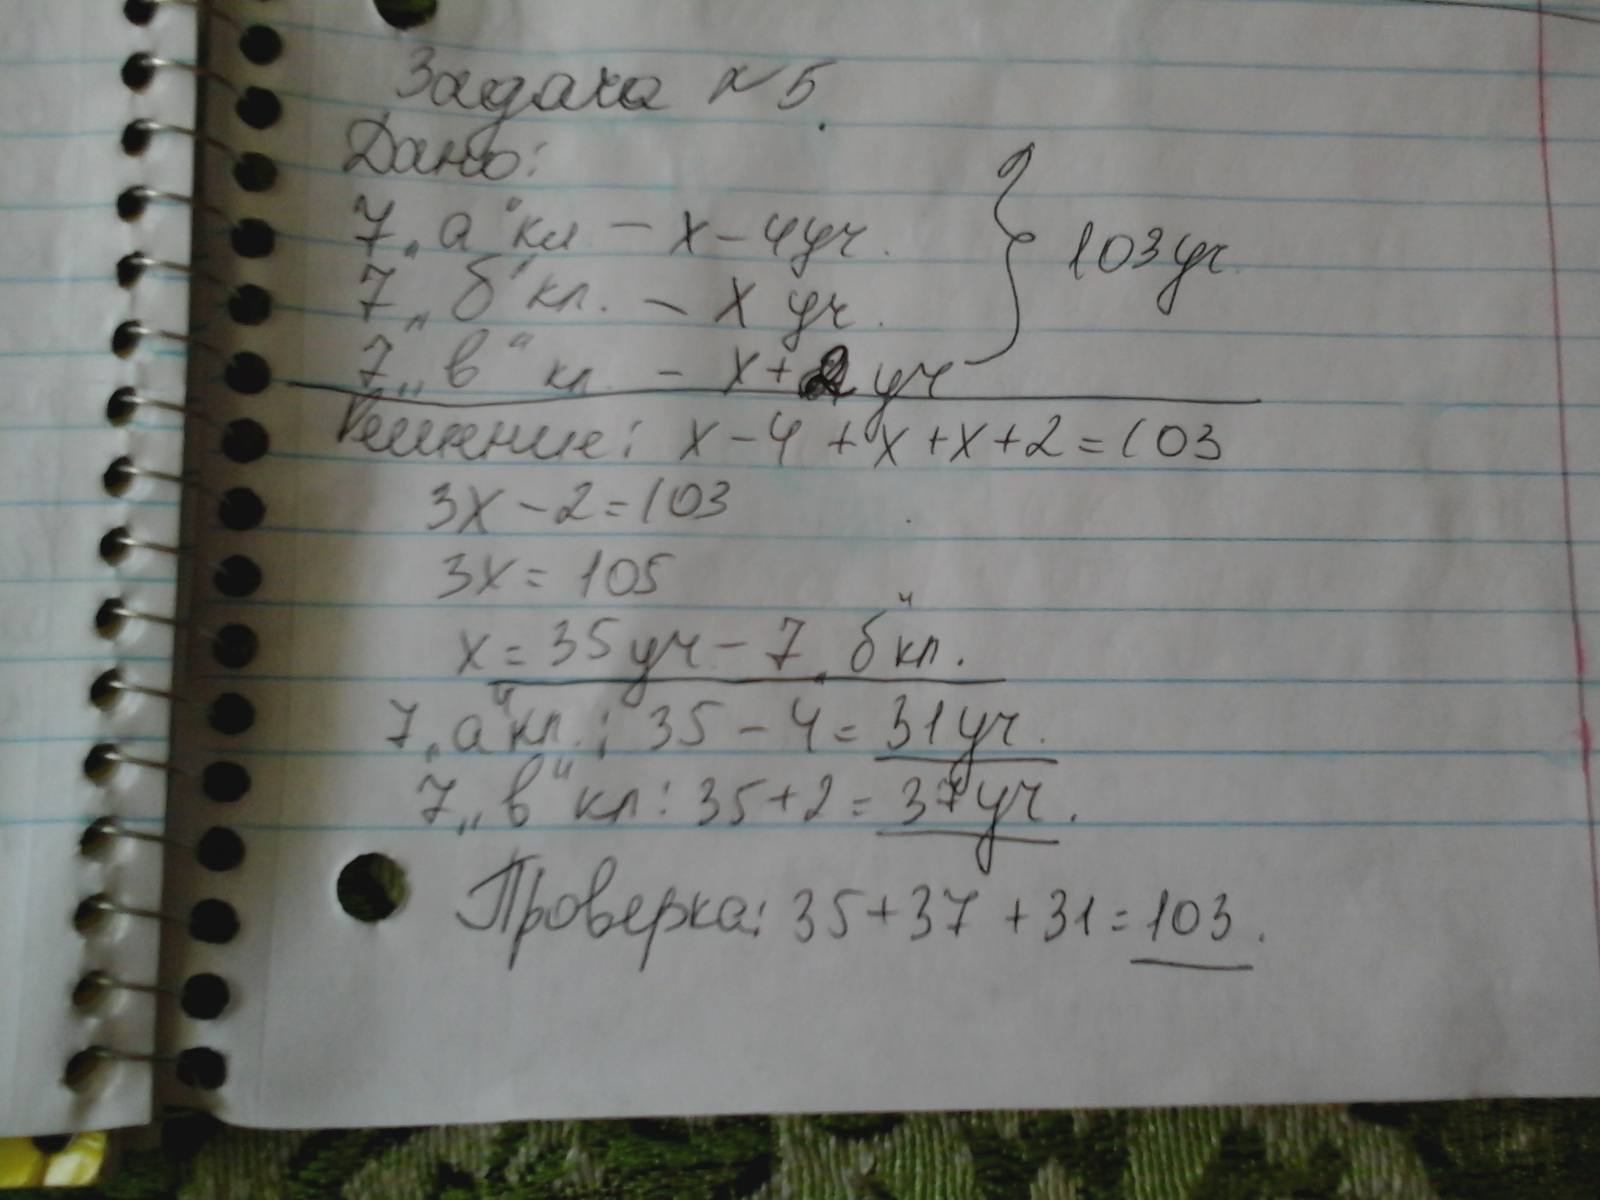 Задача № 5.
Дано:
7 „а“ кл – x – 4 уч.
7 „б“ кл. – x уч.
7 „в“ кл. – x + 2 уч
} 103 уч.
Решение: x – 4 + x + x + 2 = 103
3x – 2 = 103
3x = 105
x = 35 уч – 7 „б“ кл.
7 „а“ кл.: 35 – 4 = 31 уч.
7 „в“ кл: 35 + 2 = 37 уч.
Проверка: 35 + 37 + 31 = 103.